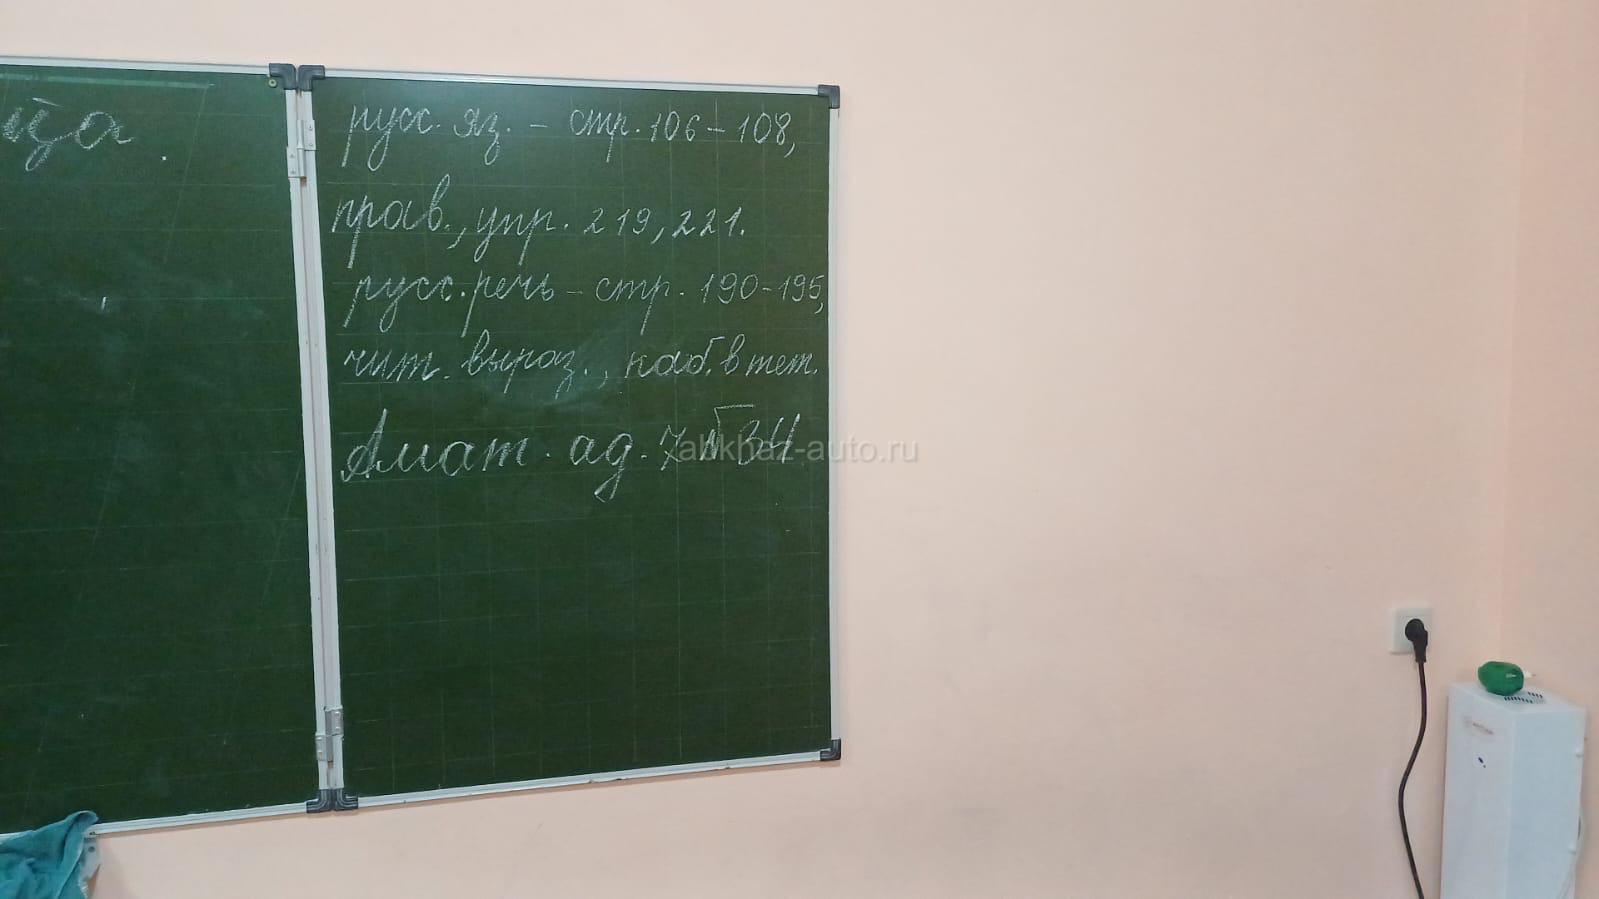 ица.
русс. яз. – стр. 106 – 108,
прав., упр. 219, 221.
русс. речь – стр. 190 - 195,
чит. выраз., наб. в тет.
Амат. ад. 7 №34
abkhaz-auto.ru